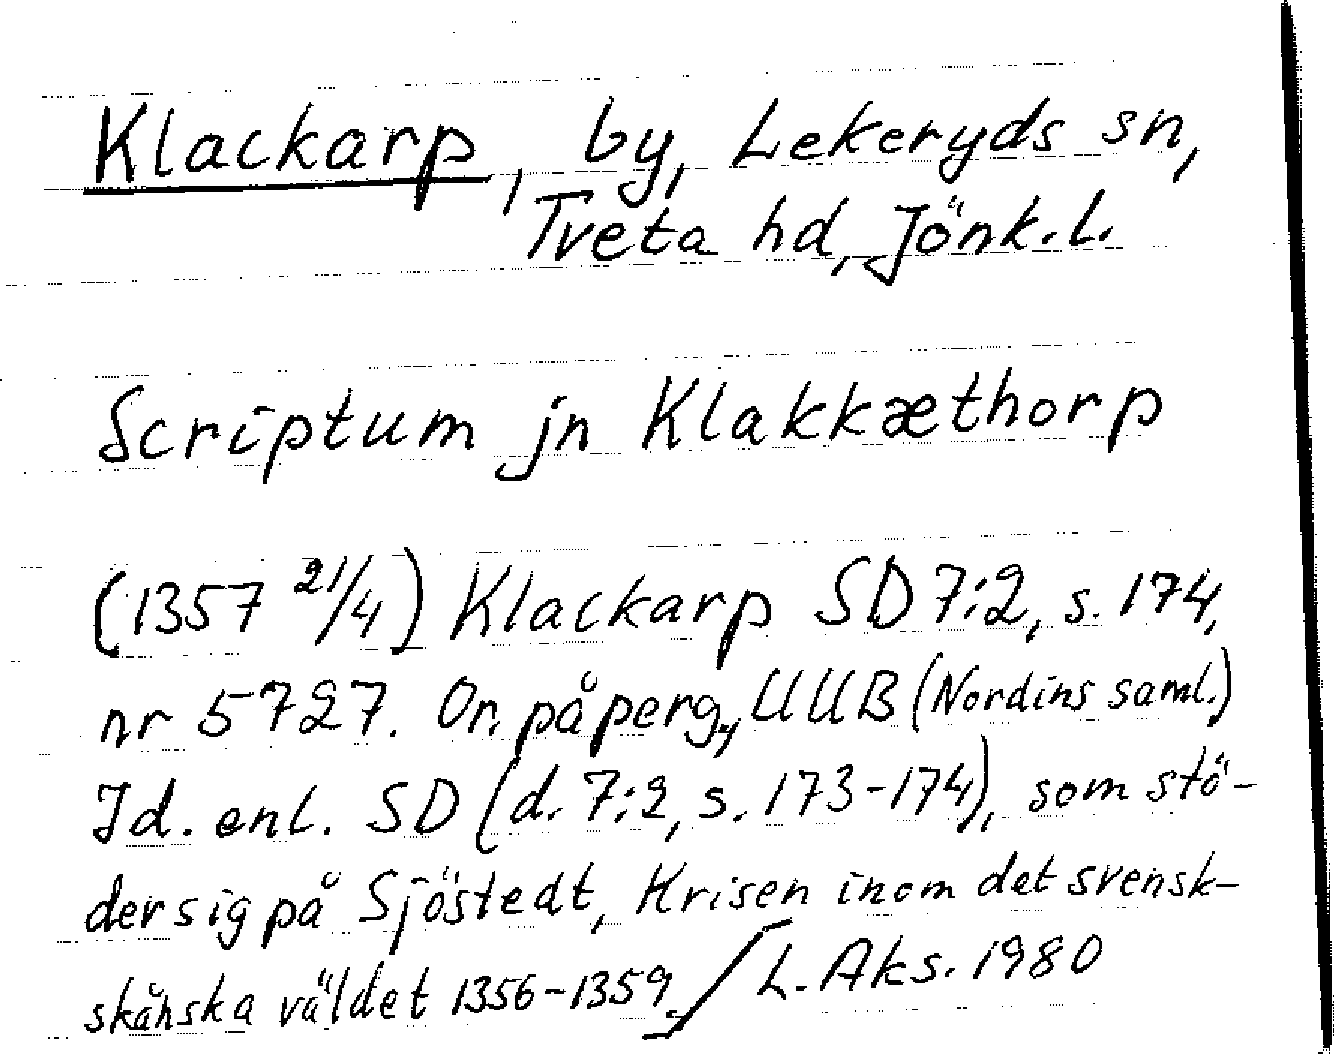 Klackarp, by, Lekeryds sn,
Tveta hd, Jönk. l.
Scriptum jn Klakkæthorp
(1357 21/4) Klackarp SD 7:2, s. 174,
nr 5727. Or. på perg., UUB (Nordins saml.)
Id. enl. SD (d. 7:2, s. 173-174), som stö-
der sig på Sjöstedt, Krisen inom det svensk-
skånska väldet 1356-1359. / L. Aks. 1980